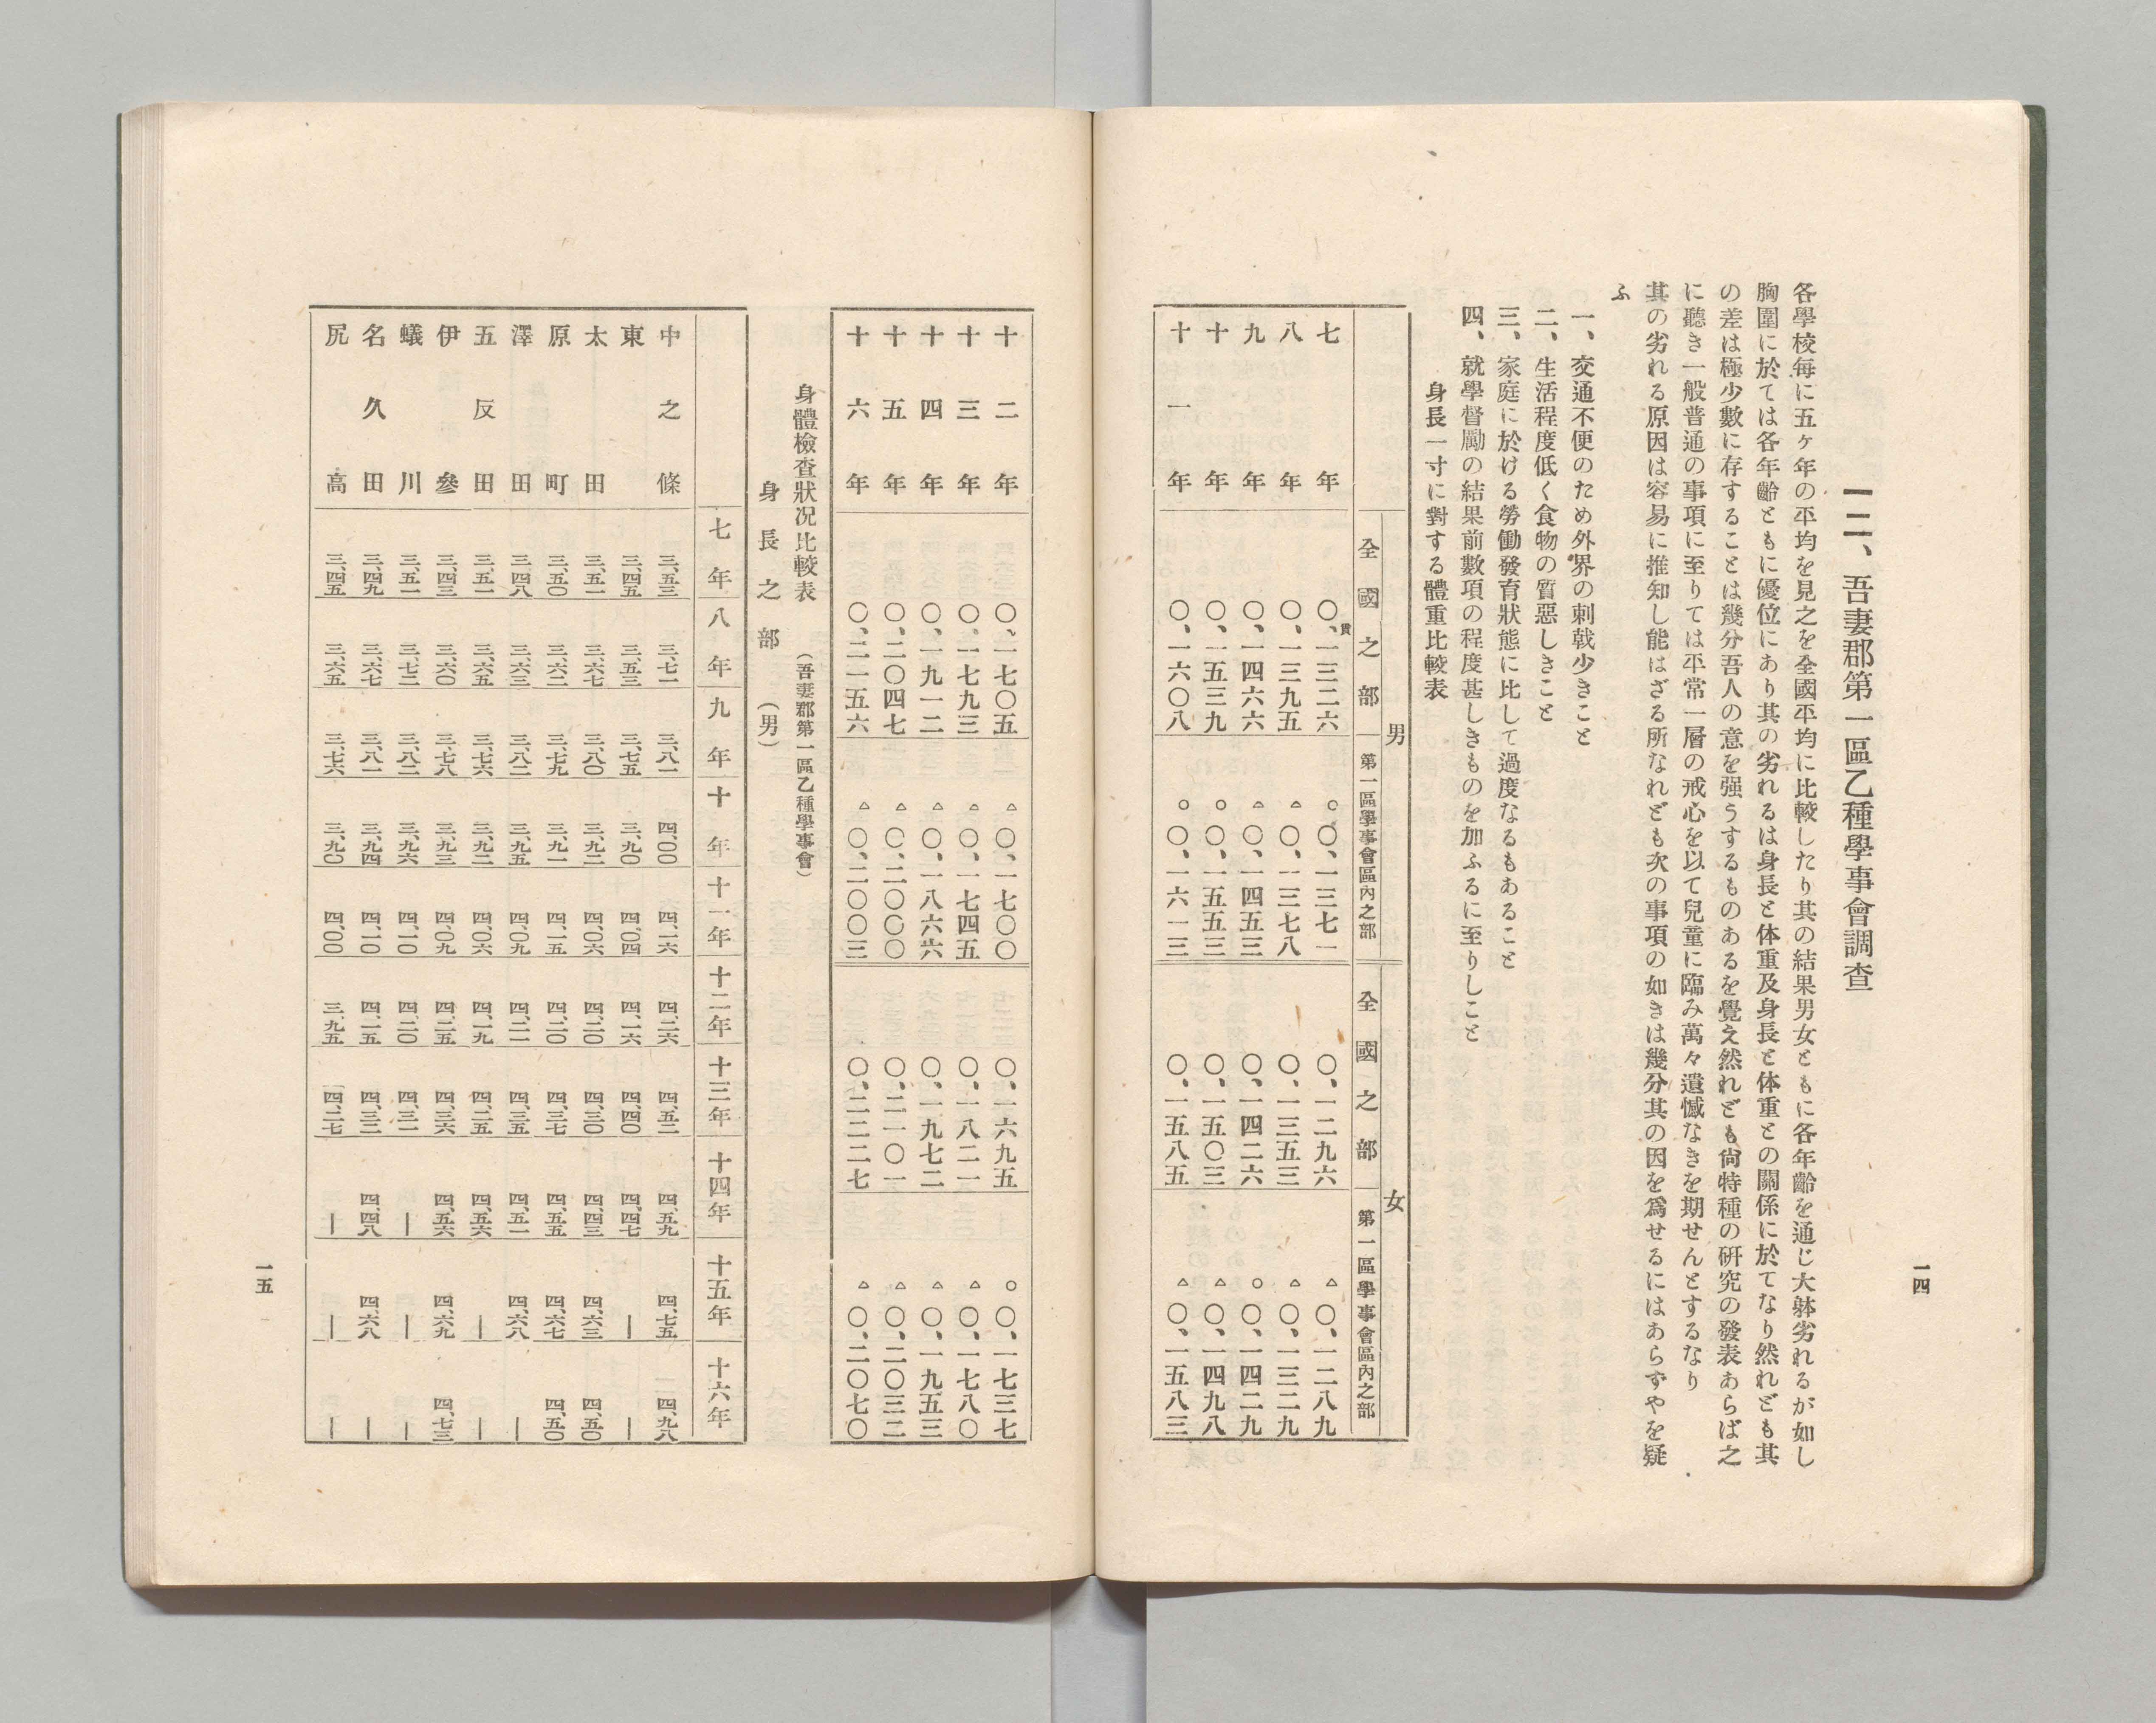 一二、吾妻郡第一區乙種學事會調査
各學校每に五ヶ年の平均を見之を全國平均に比較したり其の結果男女ともに各年齡を通じ大躰劣れるが如し
胸圍に於ては各年齡ともに優位にあり其の劣れるは身長と体重及身長と体重との關係に於てなり然れども其
の差は極少數に存することは幾分吾人の意を强うするものあるを覺え然れども尙特種の硏究の發表あらば之
に聽き一般普通の事項に至りては平常一層の戒心を以て兒童に臨み萬々遺憾なきを期せんとするなり
其の劣れる原因は容易に推知し能はざる所なれども次の事項の如きは幾分其の因を爲せるにはあらずやを疑
ふ
一、交通不便のため外界の刺戟少きこと
二、生活程度低く食物の質惡しきこと
三、家庭に於ける勞働發育狀態に比して過度なるもあること
四、就學督勵の結果前數項の程度甚しきものを加ふるに至りしこと
身長一寸に對する體重比較表
男 女
全國之部 第一區學事會區內之部 全國之部 第一區學事會區內之部
七年 〇、一三二六貫 ○〇、一三七一 〇、一二九六 △〇、一二八九
八年 〇、一三九五 △〇、一三七八 〇、一三五三 △〇、一三二九
九年 〇、一四六六 △〇、一四五三 〇、一四二六 ○〇、一四二九
十年 〇、一五三九 ○〇、一五五三 〇、一五〇三 △〇、一四九八
十一年 〇、一六〇八 ○〇、一六一三 〇、一五八五 △〇、一五八三
一四
十二年 〇、一七〇五 △〇、一七〇〇 〇、一六九五 ○〇、一七三七
十三年 〇、一七九三 △〇、一七四五 〇、一八二一 △〇、一七八〇
十四年 〇、一九一二 △〇、一八六六 〇、一九七二 △〇、一九五三
十五年 〇、二〇四七 △〇、二〇〇〇 〇、二一〇一 △〇、二〇三二
十六年 〇、二一五六 △〇、二〇〇三 〇、二二二七 △〇、二〇七〇
身體檢查狀況比較表（吾妻郡第一區乙種學事會）
身長之部（男）
七年 八年 九年 十年 十一年 十二年 十三年 十四年 十五年 十六年
中之條 三、五三 三、七一 三、八一 四、〇〇 四、一六 四、二六 四、五二 四、五九 四、七五 四、九八
東 三、四五 三、五三 三、七五 三、九〇 四、〇四 四、一六 四、四〇 四、四七 ― ―
太田 三、五一 三、六七 三、八〇 三、九二 四、〇六 四、二〇 四、三〇 四、四三 四、六三 四、五〇
原町 三、五〇 三、六二 三、七九 三、九一 四、一五 四、二〇 四、三七 四、五五 四、六七 四、五〇
澤田 三、四八 三、六三 三、八二 三、九五 四、〇九 四、二一 四、三五 四、五一 四、六八 ―
五反田 三、五一 三、六五 三、七六 三、九二 四、〇六 四、一九 四、二五 四、五六 ― ―
伊參 三、四三 三、六〇 三、七八 三、九三 四、〇九 四、二五 四、三六 四、五六 四、六九 四、七三
蟻川 三、五一 三、七二 三、八二 三、九六 四、一〇 四、二〇 四、三一 ― ― ―
名久田 三、四九 三、六七 三、八一 三、九四 四、一〇 四、一五 四、三二 四、四八 四、六八 ―
尻高 三、四五 三、六五 三、七六 三、九〇 四、〇〇 三、九五 四、二七 ― ― ―
一五